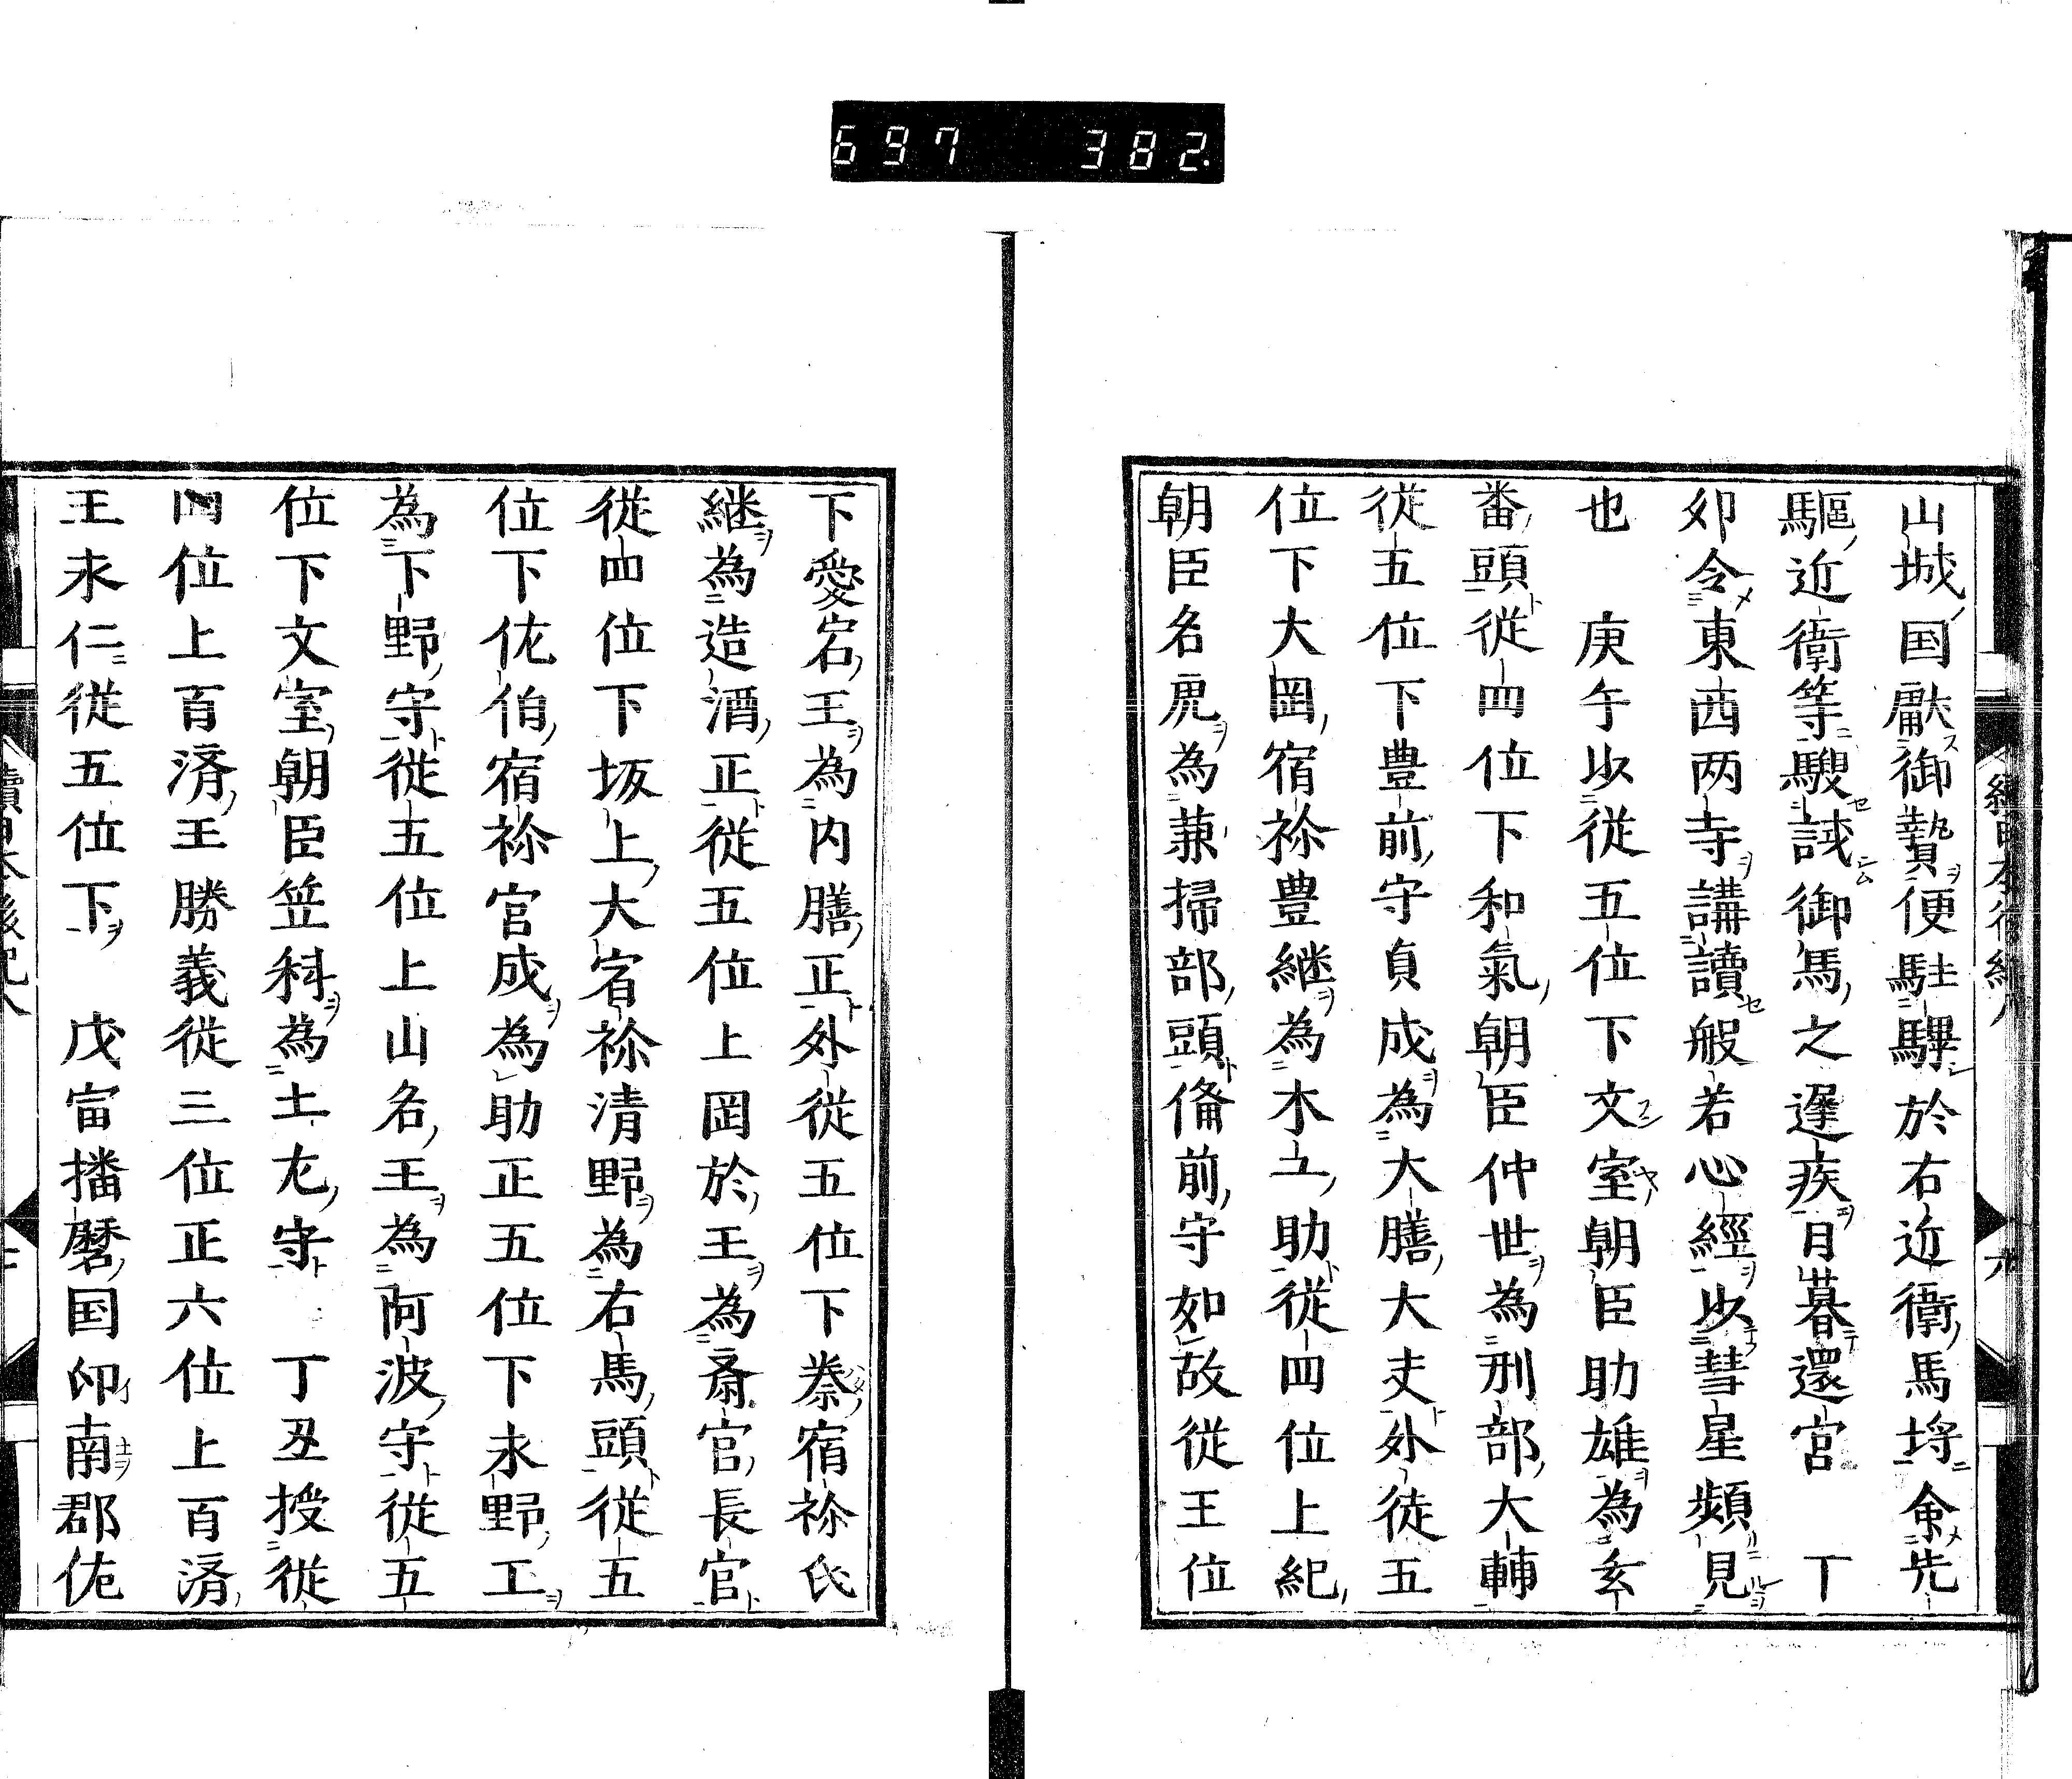 697 382.
山城国献御贄便駐蹕於右近衛馬埒命先
駆近衛等騪試御馬之遅疾日暮還宮 丁
卯令東西两寺講讀般若心經以彗星頻見
也 庚午以従五位下文室朝臣助雄為玄
番頭従四位下和氣朝臣仲世為刑部大輔
従五位下豊前守貞成為大膳大夫外従五
位下大岡宿祢豊継為木工助従四位上紀
朝臣名虎為兼掃部頭俻前守如故従王位
下愛宕王為内膳正外従五位下㮈宿祢氏
継為造酒正従五位上岡於王為斎官長官
従四位下坂上大宿祢清野為右馬頭従五
位下佐伯宿祢官成為助正五位下永野王
為下野守従五位上山名王為阿波守従五
位下文室朝臣笠科為土左守 丁丑授従
四位上百済王勝義従三位正六位上百済
王永仁従五位下 戊寅播磨国印南郡佐